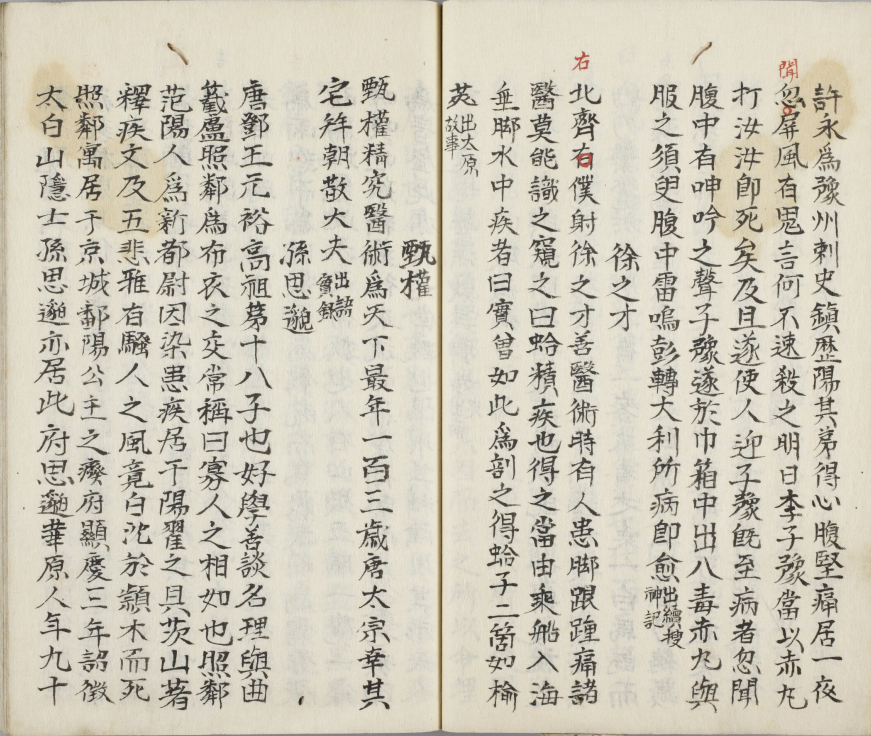 聞
許永爲豫州刺史鎮歴陽其弟得心腹堅痛居一夜
忽屏風有鬼言何不速殺之明日李子豫當以赤丸
打汝汝即死矣及旦遂使人迎子豫既至病者忽聞
腹中有呻吟之聲子豫遂於巾箱中出八毒赤丸與
服之須臾腹中雷鳴彭轉大利所病即愈出續搜神記
徐之才
右
北齊有僕射徐之才善醫術時有人患脚跟踵痛諸
醫莫能識之窺之曰蛤積疾也得之當由乘船入海
垂脚水中疾者曰實曽如此爲剖之得蛤子二箇如榆
莢出太原故事
甄權
甄權精究醫術爲天下最年一百三歳唐太宗幸其
宅拜朝散大夫出譚賓録
孫思邈
唐鄧王元裕高祖第十八子也好學善談名理與曲
籤盧照鄰爲布衣之交常稱曰寡人之相如也照鄰
范陽人爲新都尉因染患疾居于陽翟之具茨山著
釋疾文及五悲雅有騷人之風竟自沈於潁水而死
照鄰寓居于京城鄱陽公主之廢府顯慶三年詔徵
太白山隱士孫思邈亦居此府思邈華原人年九十